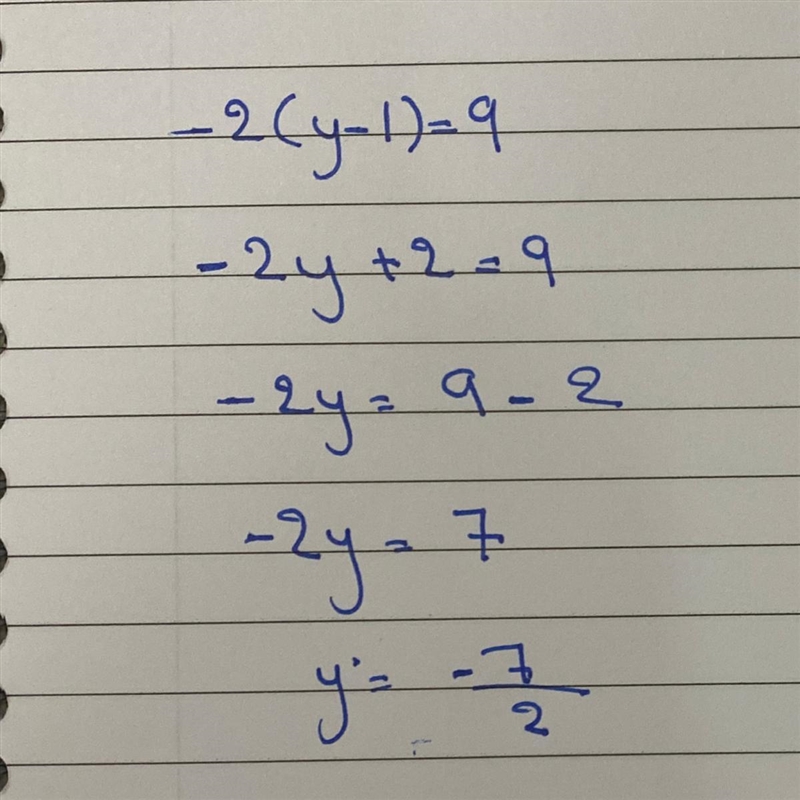 -2(y-1)=9
-2y+2=9
-2y=9-2
-2y=7
y=-7/2